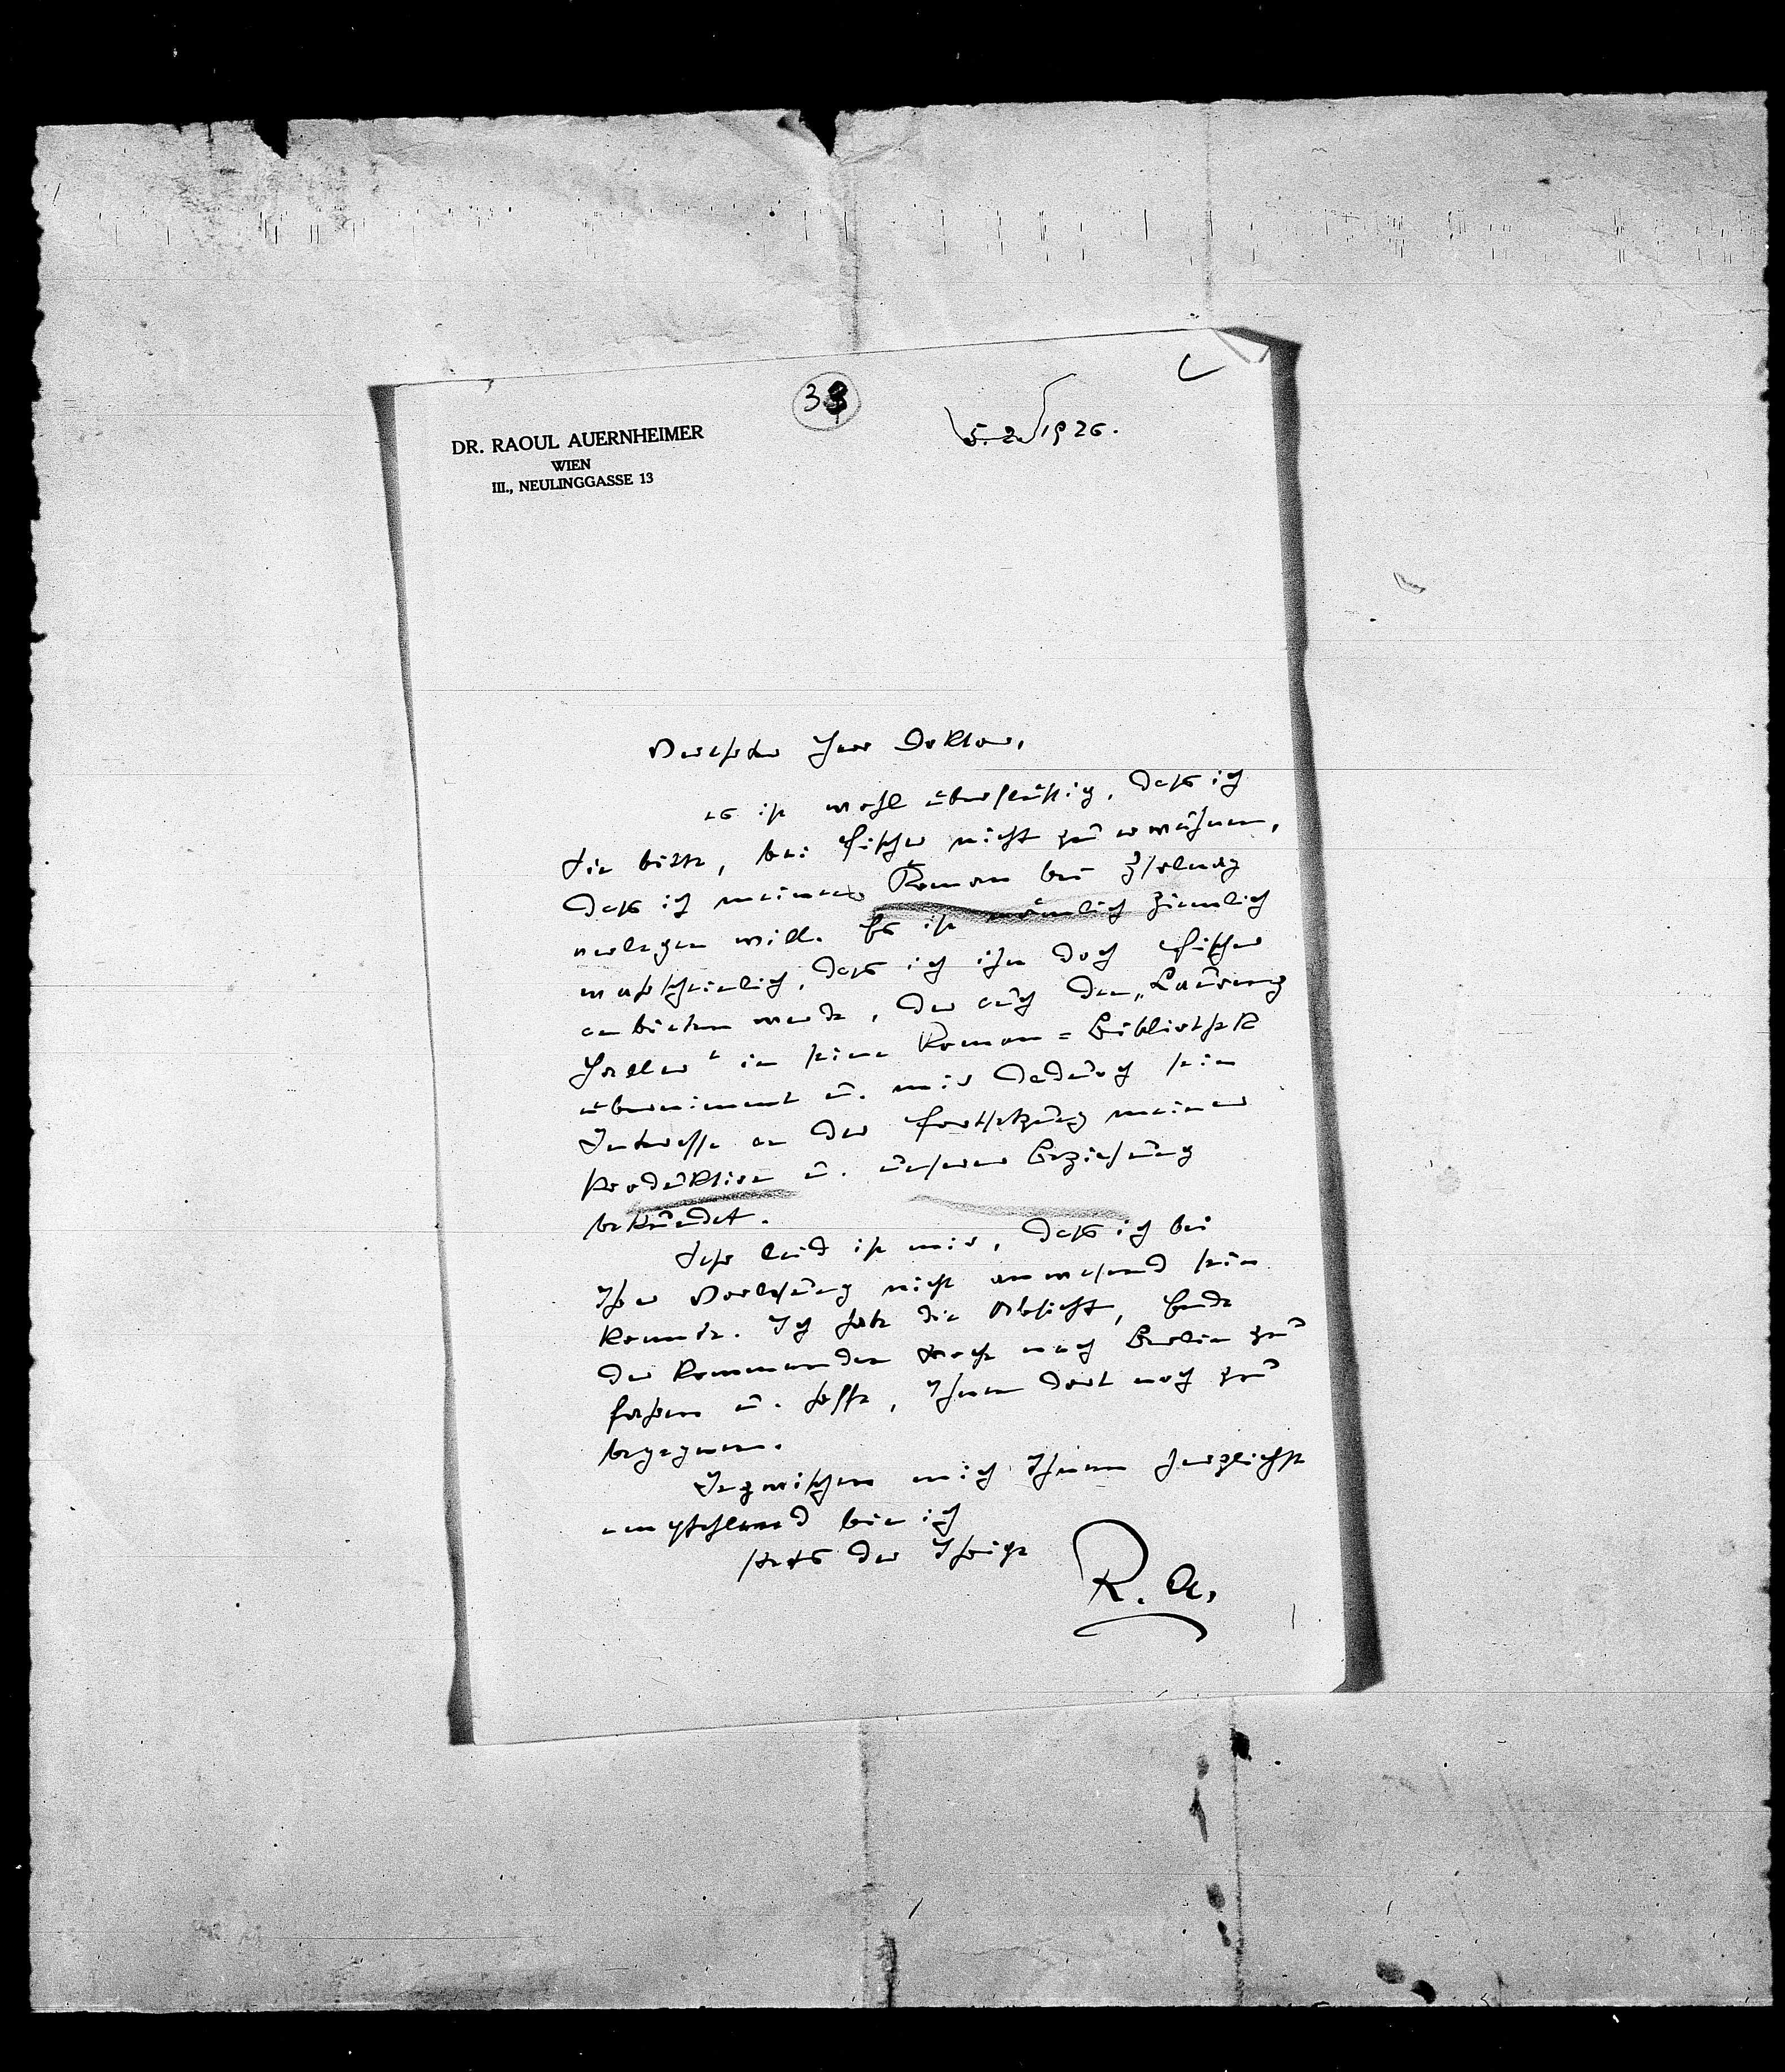 38
5.2.1926.
DR. RAOUL AUERNHEIMER
WIEN
III., NEULINGGASSE 13
Verehrter Herr Doktor,
es ist wohl überflüssig, dass ich
Sie bitte, bei Fischer nicht zu erwähnen,
dass ich meinen Roman bei Zsolnay
verlegen will. Es ist nämlich ziemlich
wahrscheinlich, dass ich ihn doch Fischer
anbieten werde, der auch den „Laurenz
Haller" in seine Roman=Bibliothek
übernimmt u. mir dadurch sein
Interesse an der Fortsetzung meiner
Produktion u. unserer Beziehung
bekundet.
Sehr leid ist mir, dass ich bei
Ihrer Vorlesung nicht anwesend sein
konnte. Ich habe die Absicht, Ende
der kommenden Woche nach Berlin zu
fahren u. hoffe, Ihnen dort noch zu
begegnen.
Inzwischen mich Ihnen herzlichst
empfehlend bin ich
stets der Ihrige
R. A.